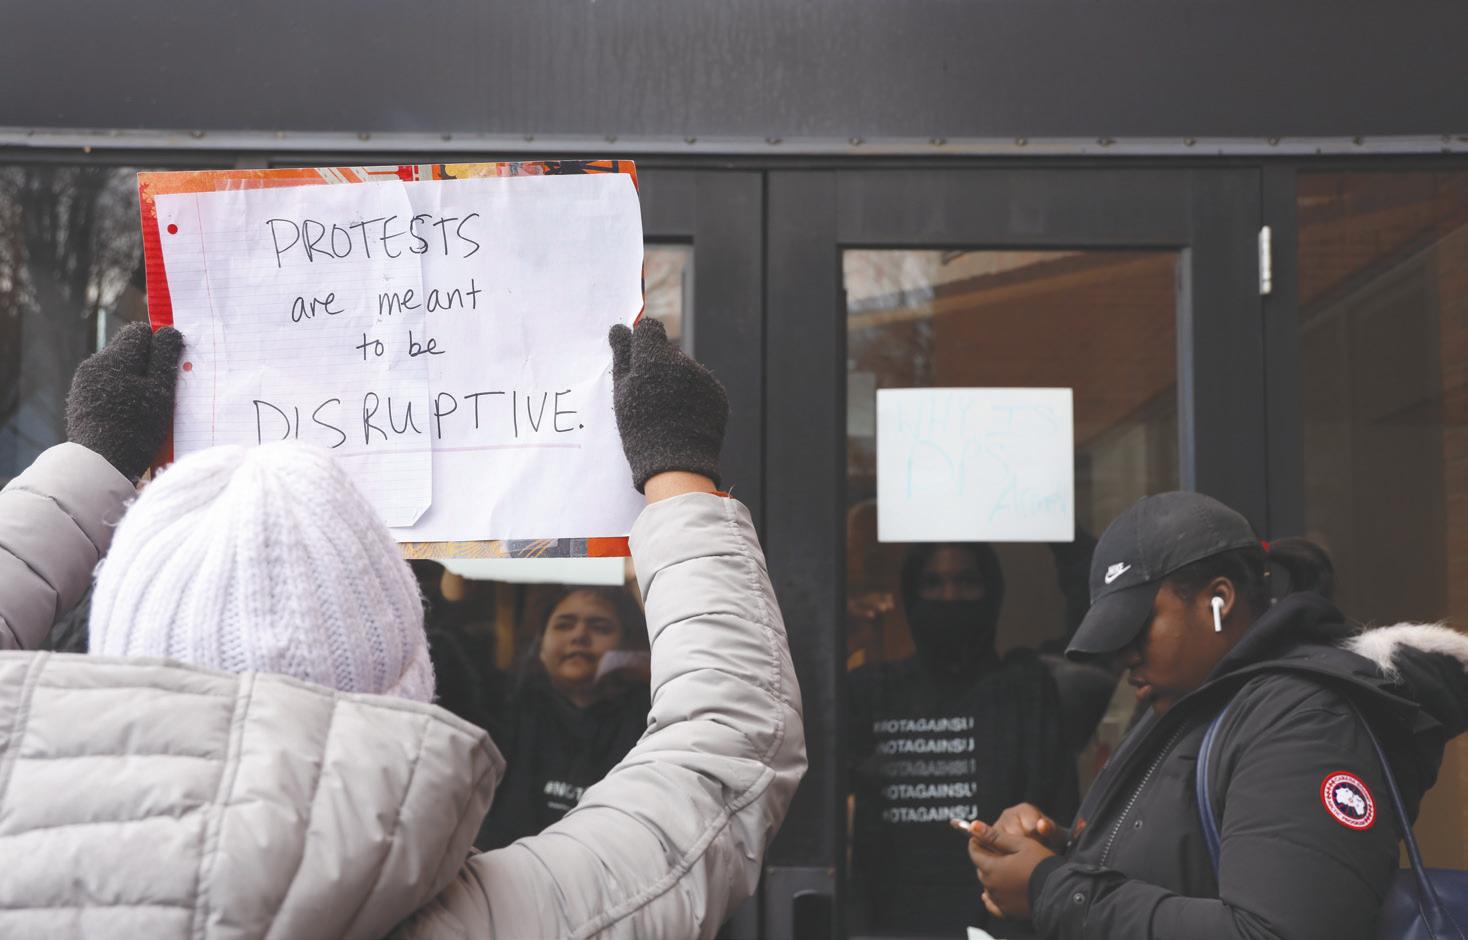 PROTESTS
are meant
to be
DISRUPTIVE.
WHY IS
DPS
#NOTAGAINSU
#NOTAGAINSU
#NOTAGAINSU
#NOTAGAINSU
#NOTAGAINSU